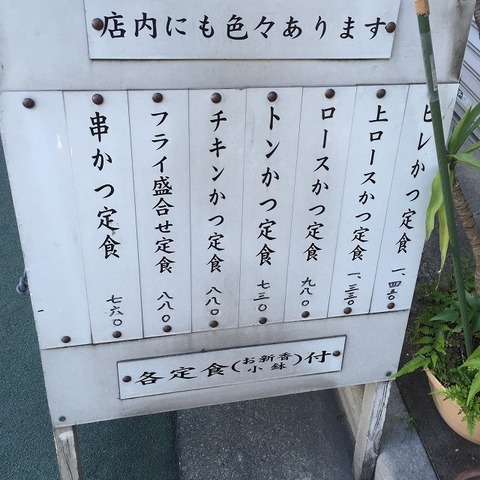 店内にも色々あります
ヒレかつ定食 一、四五〇
上ロースかつ定食 一、三三〇
ロースかつ定食 九八〇
トンかつ定食 七三〇
チキンかつ定食 八八〇
フライ盛合せ定食 八八〇
串かつ定食 七六〇
各定食(お新香小鉢)付